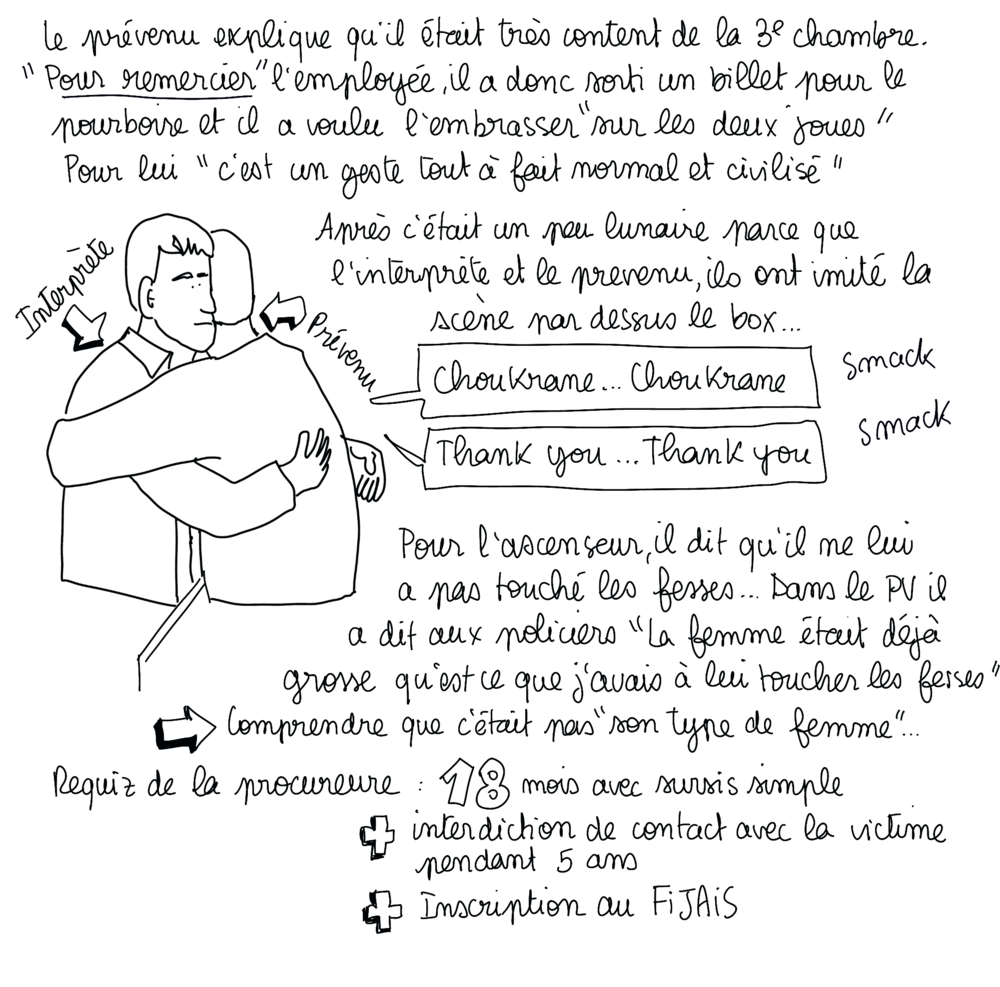 Le prévenu explique qu'il était très content de la 3e chambre.
"Pour remercier" l'employée, il a donc sorti un billet pour le
pourboire et il a voulu l'embrasser "sur les deux joues"
Pour lui "c'est un geste tout à fait normal et civilisé"
Après c'était un peu lunaire parce que
l'interprète et le prevenu, ils ont imité la
scène par dessus le box...
Interprète
Prévenu
ChouKrane... ChouKrane
smack
Thank you... Thank you
smack
Pour l'ascenseur, il dit qu'il ne lui
a pas touché les fesses... Dans le PV il
a dit aux policiers "La femme était déjà
grosse qu'est ce que j'avais à lui toucher les fesses"
Comprendre que c'était pas "son type de femme"...
Requiz de la procureure : 18 mois avec sursis simple
+ interdiction de contact avec la victime
pendant 5 ans
+ Inscription au FiJAiS